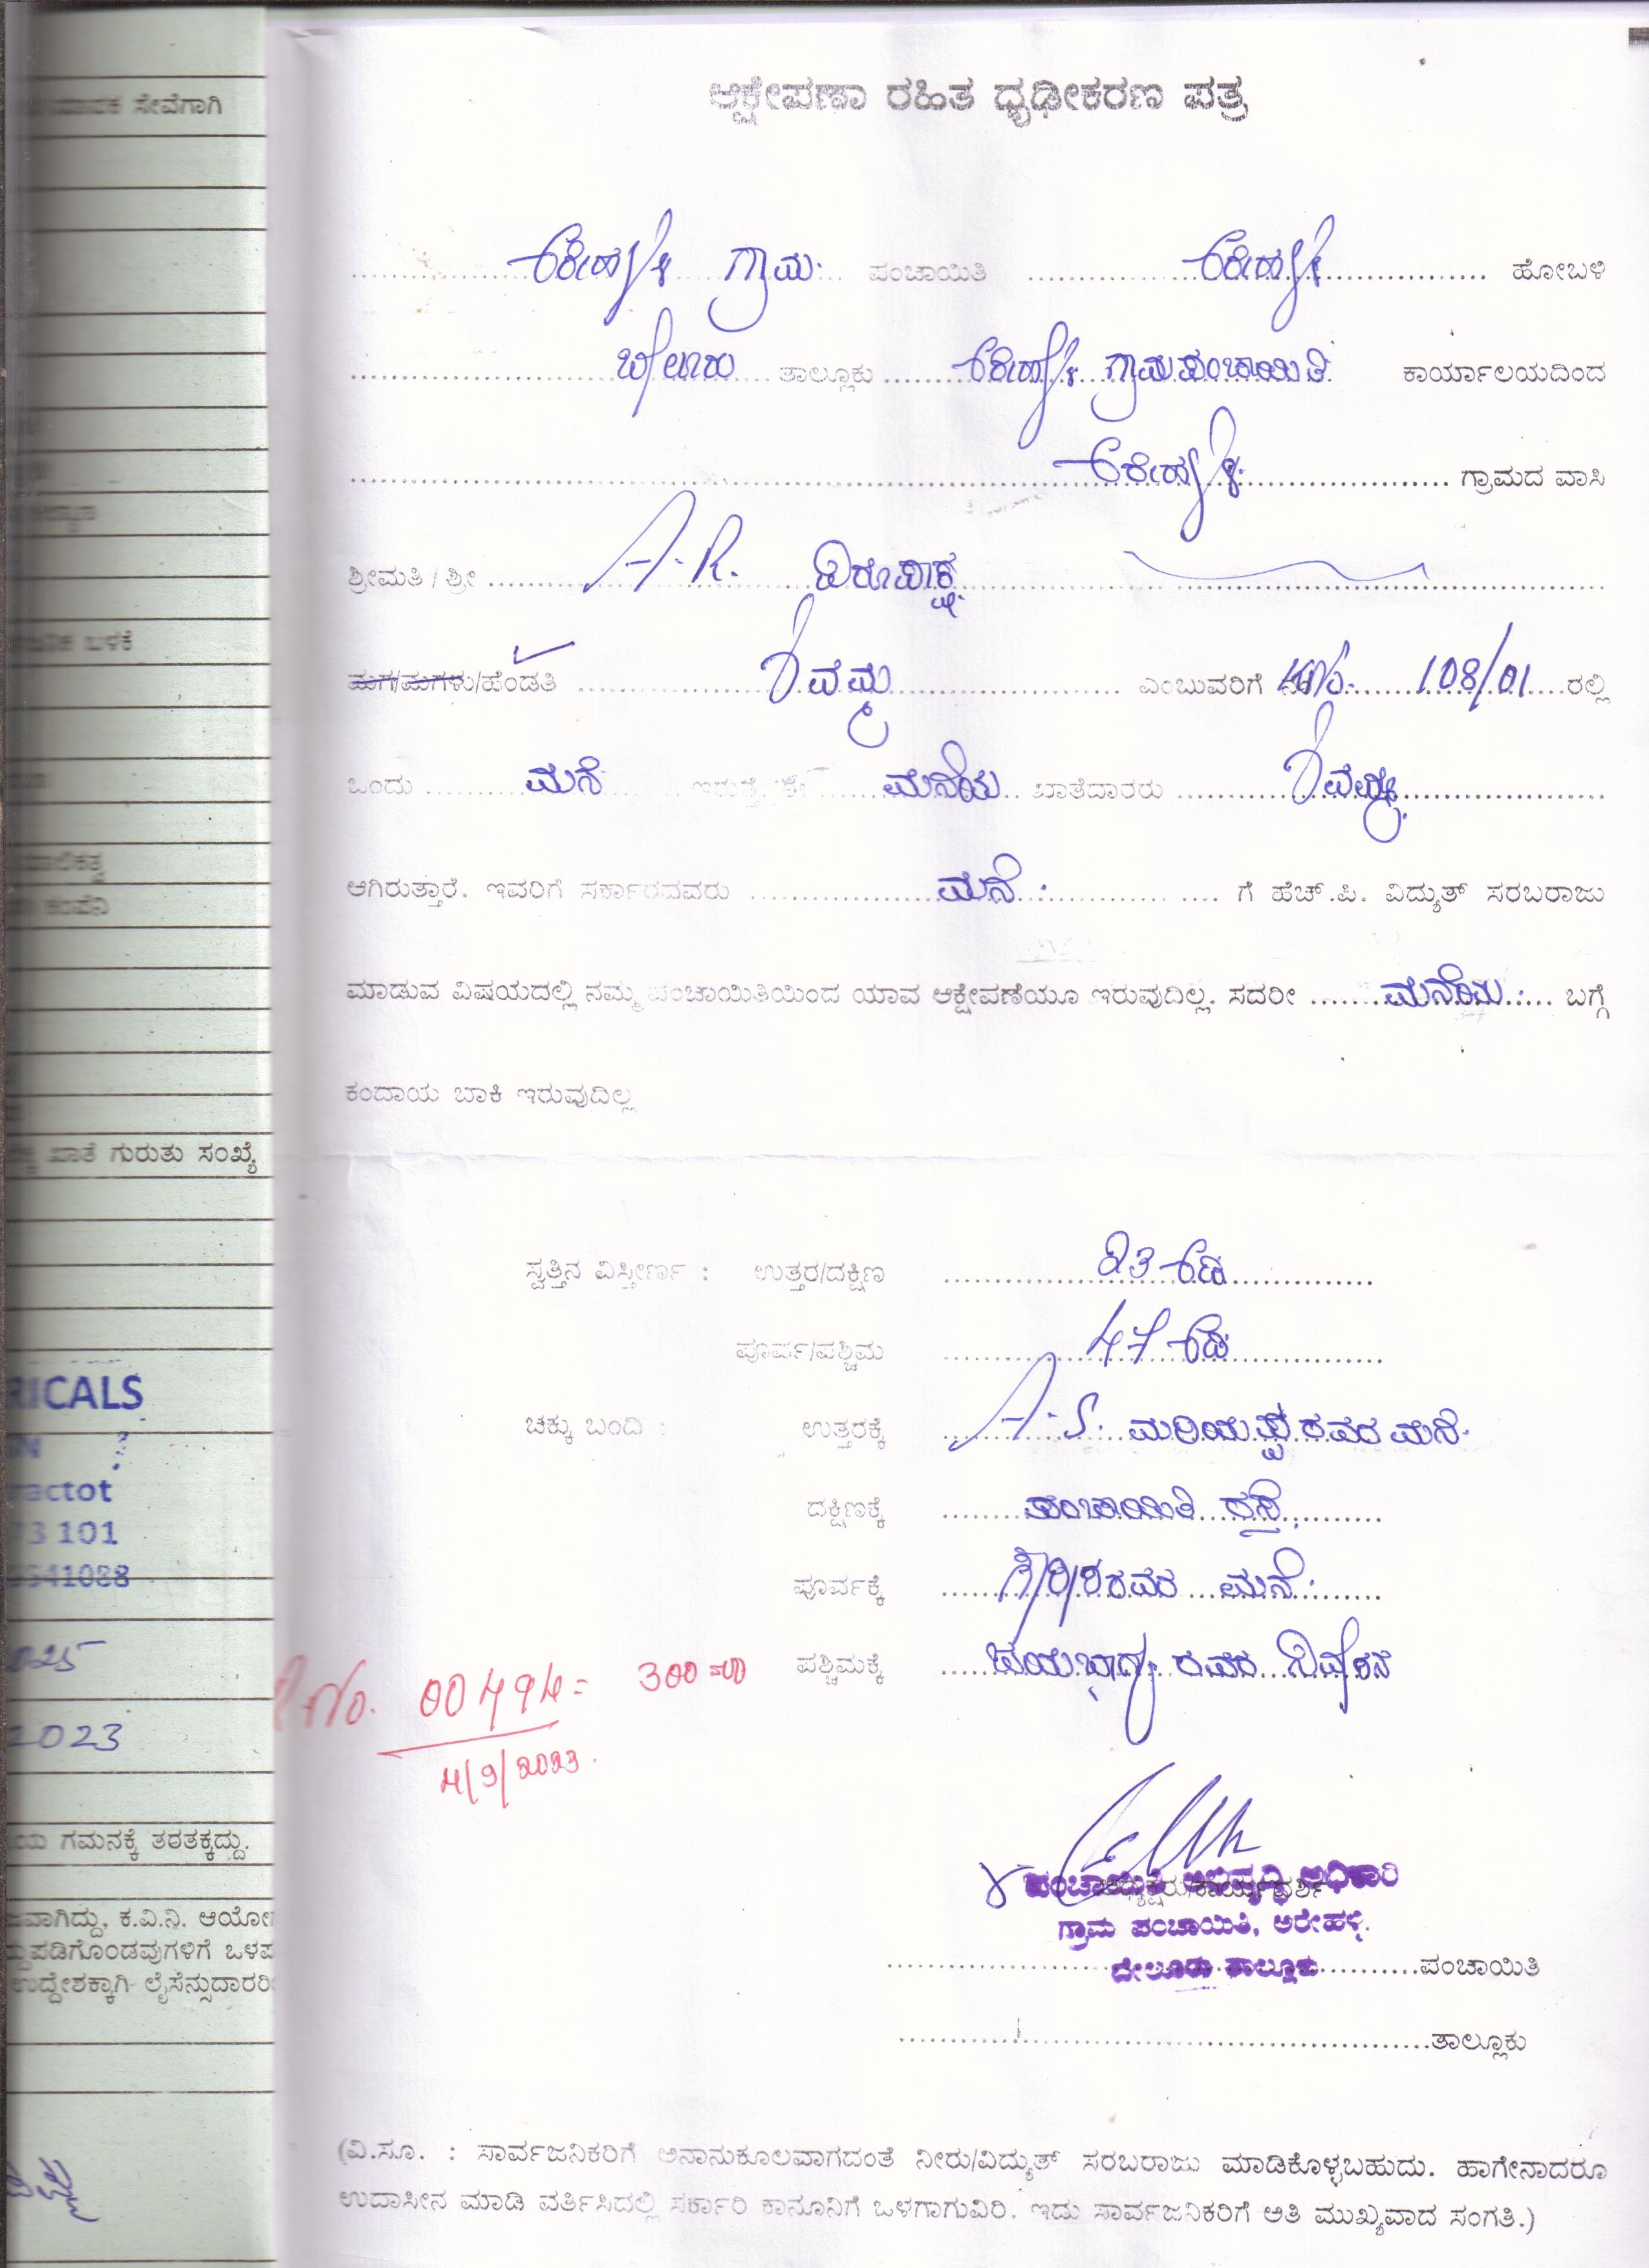 ಮಾಪಕ ಸೇವೆಗಾಗಿ
ಬಳಕೆ
ಖಾತೆ ಗುರುತು ಸಂಖ್ಯೆ
RICALS
actot
3 101
541088
2023
ಗಮನಕ್ಕೆ ತರತಕ್ಕದ್ದು.
ವಾಗಿದ್ದು, ಕ.ವಿ.ನಿ. ಆಯೋಗ
ಪಡಿಗೊಂಡವುಗಳಿಗೆ ಒಳಪ
ಉದ್ದೇಶಕ್ಕಾಗಿ ಲೈಸೆನ್ಸುದಾರರಿ
ಆಕ್ಷೇಪಣಾ ರಹಿತ ಧೃಢೀಕರಣ ಪತ್ರ
ಅರೇಹಳ್ಳಿ ಗ್ರಾಮ ಪಂಚಾಯಿತಿ ಅರೇಹಳ್ಳಿ ಹೋಬಳಿ
ಬೇಲೂರು ತಾಲ್ಲೂಕು ಅರೇಹಳ್ಳಿ ಗ್ರಾಮಪಂಚಾಯಿತಿ ಕಾರ್ಯಾಲಯದಿಂದ
ಅರೇಹಳ್ಳಿ ಗ್ರಾಮದ ವಾಸಿ
ಶ್ರೀಮತಿ / ಶ್ರೀ A.R. ವಿರೂಪಾಕ್ಷ
ಮಗ/ಮಗಳು/ಹೆಂಡತಿ ಶಿವಮ್ಮ ಎಂಬುವರಿಗೆ ನಂ. 108/01 ರಲ್ಲಿ
ಒಂದು ಮನೆ ಇರುತ್ತೆ. ಈ ಮನೆಯ ಖಾತೆದಾರರು
ಆಗಿರುತ್ತಾರೆ. ಇವರಿಗೆ ಸರ್ಕಾರದವರು ಮನೆ ಗೆ ಹೆಚ್.ಪಿ. ವಿದ್ಯುತ್ ಸರಬರಾಜು
ಮಾಡುವ ವಿಷಯದಲ್ಲಿ ನಮ್ಮ ಪಂಚಾಯಿತಿಯಿಂದ ಯಾವ ಆಕ್ಷೇಪಣೆಯೂ ಇರುವುದಿಲ್ಲ. ಸದರೀ ಮನೆಯ ಬಗ್ಗೆ
ಕಂದಾಯ ಬಾಕಿ ಇರುವುದಿಲ್ಲ
ಸ್ವತ್ತಿನ ವಿಸ್ತೀರ್ಣ : ಉತ್ತರ/ದಕ್ಷಿಣ 23 ಅಡಿ
ಪೂರ್ವ/ಪಶ್ಚಿಮ 47 ಅಡಿ
ಚಕ್ಕು ಬಂದಿ : ಉತ್ತರಕ್ಕೆ A.S. ಮರಿಯಪ್ಪ ರವರ ಮನೆ
ದಕ್ಷಿಣಕ್ಕೆ ಪಂಚಾಯಿತಿ ರಸ್ತೆ
ಪೂರ್ವಕ್ಕೆ ಗಿರೀಶರವರ ಮನೆ
ಪಶ್ಚಿಮಕ್ಕೆ ಜಯಭಾಗ್ಯ ರವರ ನಿವೇಶನ
R.No. 00494= 300=00
4/9/2023.
ಪಂಚಾಯಿತಿ ಅಭಿವೃದ್ಧಿ ಅಧಿಕಾರಿ
ಅಧ್ಯಕ್ಷರು/ಕಾರ್ಯದರ್ಶಿ
ಗ್ರಾಮ ಪಂಚಾಯಿತಿ, ಅರೇಹಳ್ಳಿ
ಬೇಲೂರು ತಾಲ್ಲೂಕು ಪಂಚಾಯಿತಿ
ತಾಲ್ಲೂಕು
(ವಿ.ಸೂ. : ಸಾರ್ವಜನಿಕರಿಗೆ ಅನಾನುಕೂಲವಾಗದಂತೆ ನೀರು/ವಿದ್ಯುತ್ ಸರಬರಾಜು ಮಾಡಿಕೊಳ್ಳಬಹುದು. ಹಾಗೇನಾದರೂ
ಉದಾಸೀನ ಮಾಡಿ ವರ್ತಿಸಿದಲ್ಲಿ ಸರ್ಕಾರಿ ಕಾನೂನಿಗೆ ಒಳಗಾಗುವಿರಿ. ಇದು ಸಾರ್ವಜನಿಕರಿಗೆ ಅತಿ ಮುಖ್ಯವಾದ ಸಂಗತಿ.)